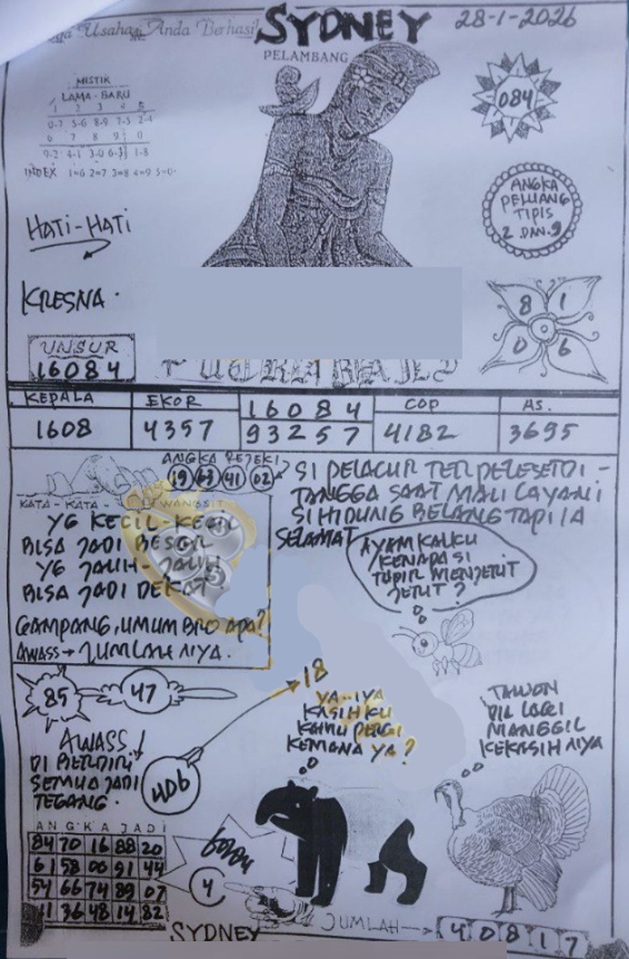 Usaha Anda Berhasil
SYDNEY
28-1-2026
PELAMBANG
MISTIK
LAMA - BARU
1 2 3 4 5
0-7 5-6 8-9 7-3 2-4
6 7 8 9 0
9-2 4-1 3-0 1-8
INDEX 1=6 2=7 3=8 4=9 5=0
084
ANGKA
PELUANG
TIPIS
2 DAN 9
HATI-HATI
KRESNA.
8 1
0 6
UNSUR
16084
KEPALA
1608
EKOR
4357
16084
93257
COP
4182
AS.
3695
ANGKA REJEKI
19 63 41 02
KATA - KATA - WANGSIT
YG KECIL-KECIL
BISA JADI BESAR
YG JAUH-JAUH
BISA JADI DEKAT
GAMPANG, UMUM BRO APA?
AWASS → JUMLAH NYA.
SI PELACUR TERPELESET DI -
TANGGA SAAT MAU LAYANI
SI HIDUNG BELANG TAPI IA
SELAMAT
AYAM KALKU
KENAPA SI
TAPIR MENJERIT
JERIT?
85
47
18
AWASS!
DI BERDIRI
SEMUA JADI
TEGANG.
406
YA..IYA
KASIH KU
KAMU PERGI
KEMANA YA?
TAWON
DIA LAGI
MANGGIL
KEKASIH NYA
ANGKA JADI
84 70 16 88 20
61 58 00 91 44
54 66 74 89 07
11 36 48 14 82
4
JUMLAH → 40817
SYDNEY